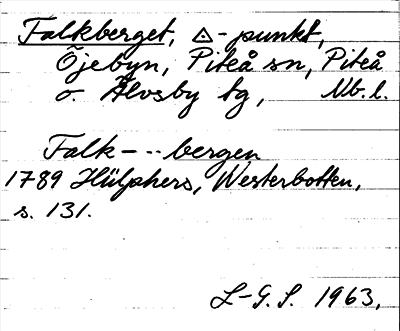 Falkberget, ◬-punkt,
Öjebyn, Piteå sn, Piteå
o. Älvsby tg, Nb. l.
Falk- -- bergen
1789 Hülphers, Westerbotten,
s. 131.
L-G. S. 1963.